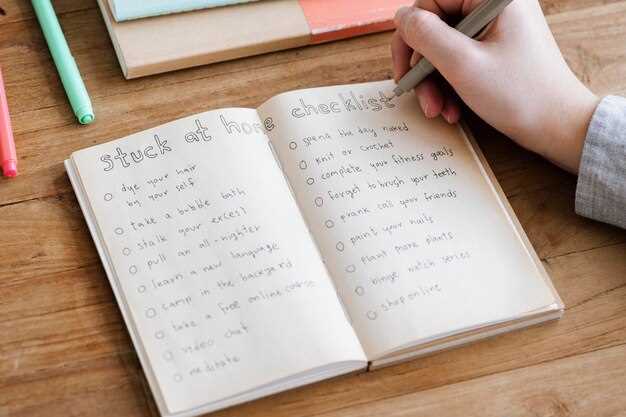 stuck at home checklist
dye your hair
by your self
take a bubble bath
stalk your exces!
pull an all-nighter
learn a new language
camp in the backyard
take a free online course
video chat
meditate
spend the day naked
knit or crochet
complete your fitness goals
forget to brush your teeth
prank call your friends
paint your nails
plant more plants
binge watch series
shop online